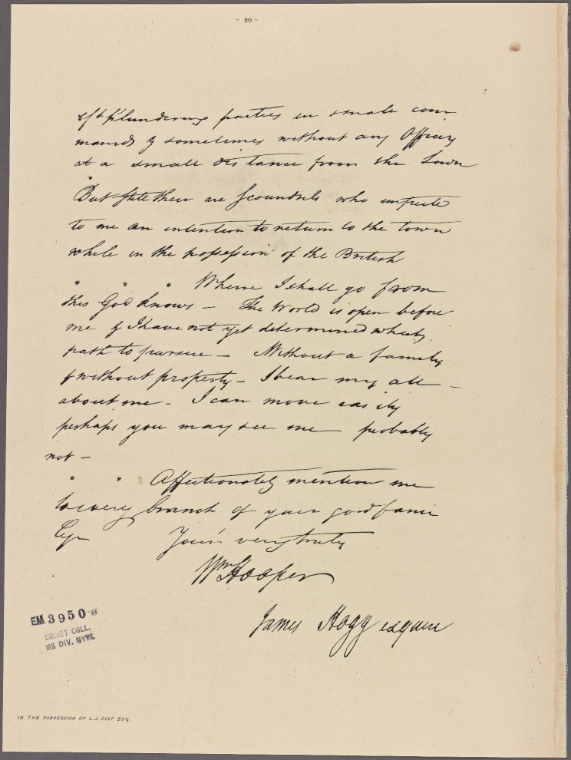 - 20 -
of plundering parties in small com
mands & sometimes without any Officer
at a small distance from the Town
But still there are Scoundrels who impute
to me an intention to return to the town
while in the possession of the British
* * * Where I shall go from
this God knows - The World is open before
me & I have not yet determined which
path to pursue - Without a family
& without property - I bear my all -
about me - I can move easily
perhaps you may see me probably
not -
* * Affectionately mention me
to every branch of your good fami
Yours very truly
Wm Hooper
James Hogg esquire
EM 3950
EMMET COLL.
MS DIV. NYPL
IN THE POSSESSION OF L. J. CIST ESQ.